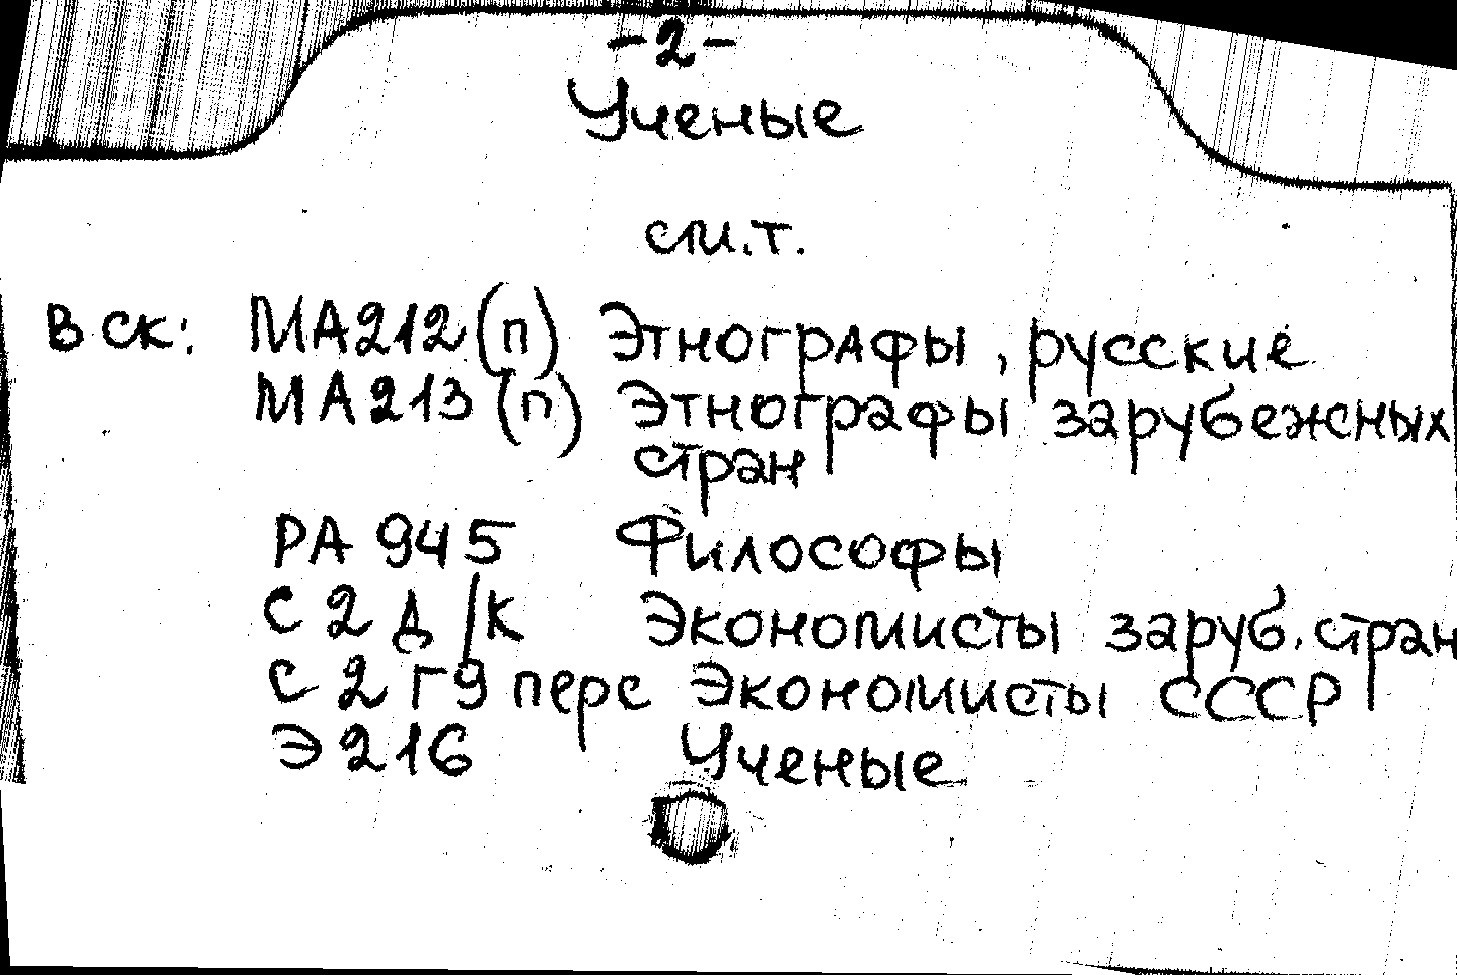 -2-
Ученые
см.т.
В ск: МА212(п) Этнографы, русские
МА213(п) Этнографы зарубежных
стран
РА 945 Философы
С 2 д/к Экономисты заруб. стран
С 2 Г9 перс Экономисты СССР
Э 216 Ученые